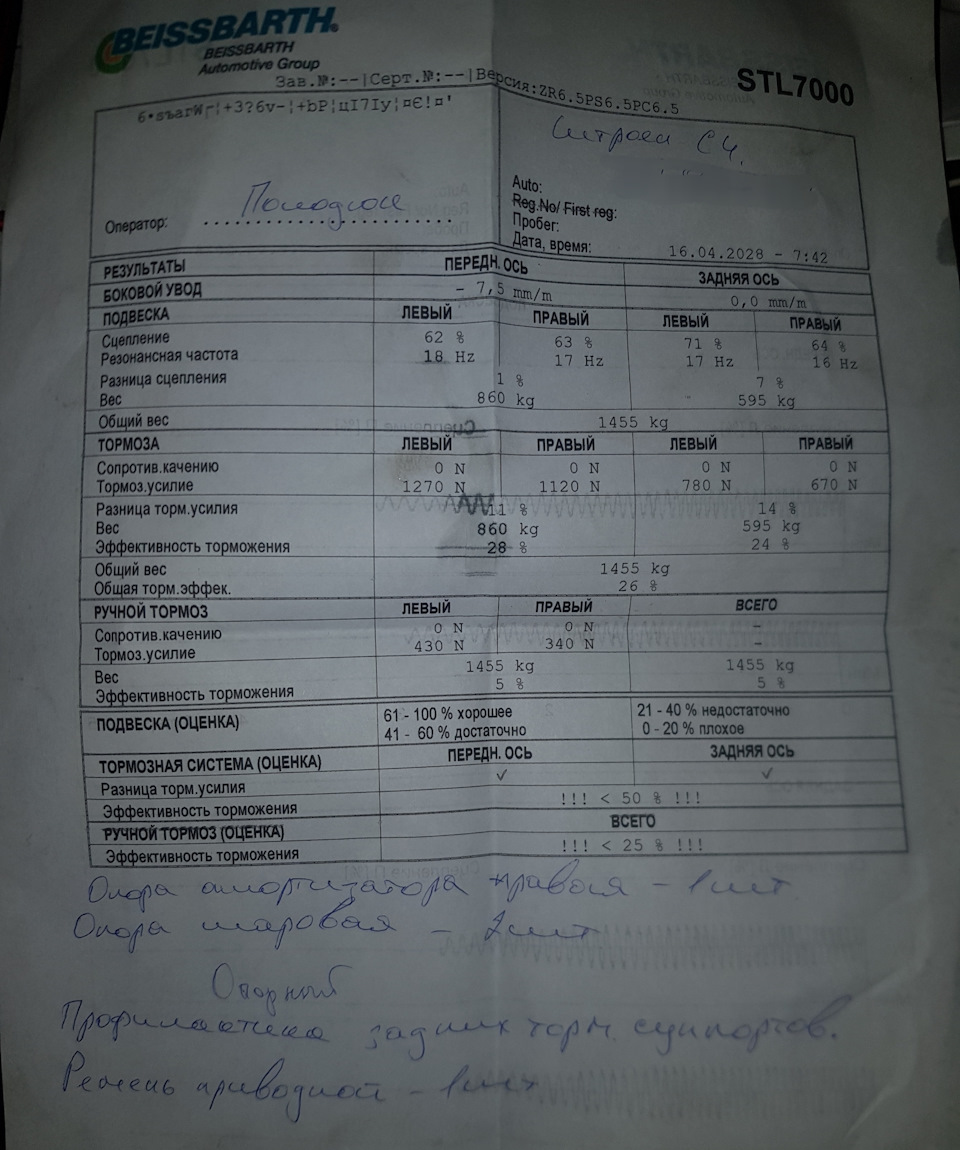 BEISSBARTH
BEISSBARTH
Automotive Group
STL7000
Зав.№:--|Серт.№:--|Версия:ZR6.5PS6.5PC6.5
Ситроен С4.
Auto:
Reg.No/ First reg:
Пробег:
Оператор:
Дата, время: 16.04.2028 - 7:42
РЕЗУЛЬТАТЫ ПЕРЕДН. ОСЬ ЗАДНЯЯ ОСЬ
БОКОВОЙ УВОД - 7,5 mm/m 0,0 mm/m
ПОДВЕСКА ЛЕВЫЙ ПРАВЫЙ ЛЕВЫЙ ПРАВЫЙ
Сцепление 62 % 63 % 71 % 64 %
Резонансная частота 18 Hz 17 Hz 17 Hz 16 Hz
Разница сцепления 1 % 7 %
Вес 860 kg 595 kg
Общий вес 1455 kg
ТОРМОЗА ЛЕВЫЙ ПРАВЫЙ ЛЕВЫЙ ПРАВЫЙ
Сопротив.качению 0 N 0 N 0 N 0 N
Тормоз.усилие 1270 N 1120 N 780 N 670 N
Разница торм.усилия 11 % 14 %
Вес 860 kg 595 kg
Эффективность торможения 28 % 24 %
Общий вес 1455 kg
Общая торм.эффек. 26 %
РУЧНОЙ ТОРМОЗ ЛЕВЫЙ ПРАВЫЙ ВСЕГО
Сопротив.качению 0 N 0 N -
Тормоз.усилие 430 N 340 N -
Вес 1455 kg 1455 kg
Эффективность торможения 5 % 5 %
ПОДВЕСКА (ОЦЕНКА) 61 - 100 % хорошее 21 - 40 % недостаточно
41 - 60 % достаточно 0 - 20 % плохое
ТОРМОЗНАЯ СИСТЕМА (ОЦЕНКА) ПЕРЕДН. ОСЬ ЗАДНЯЯ ОСЬ
Разница торм.усилия ✓ ✓
Эффективность торможения !!! < 50 % !!!
РУЧНОЙ ТОРМОЗ (ОЦЕНКА) ВСЕГО
Эффективность торможения !!! < 25 % !!!
Опора амортизатора правая - 1шт
Опора шаровая - 2шт
Опорный
Профилактика задних торм. суппортов.
Ремень приводной - 1шт